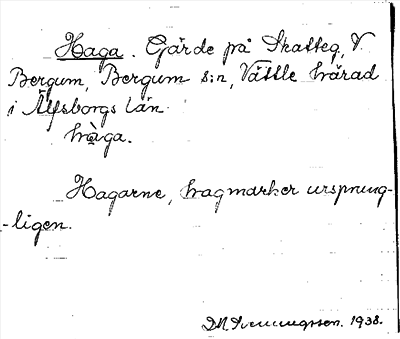 Haga. Gärde på Skatteg, V.
Bergum, Bergum s:n, Vättle härad
i Älfsborgs län.
hà̱ga.
Hagarne, hagmarker ursprung-
-ligen.
1938.